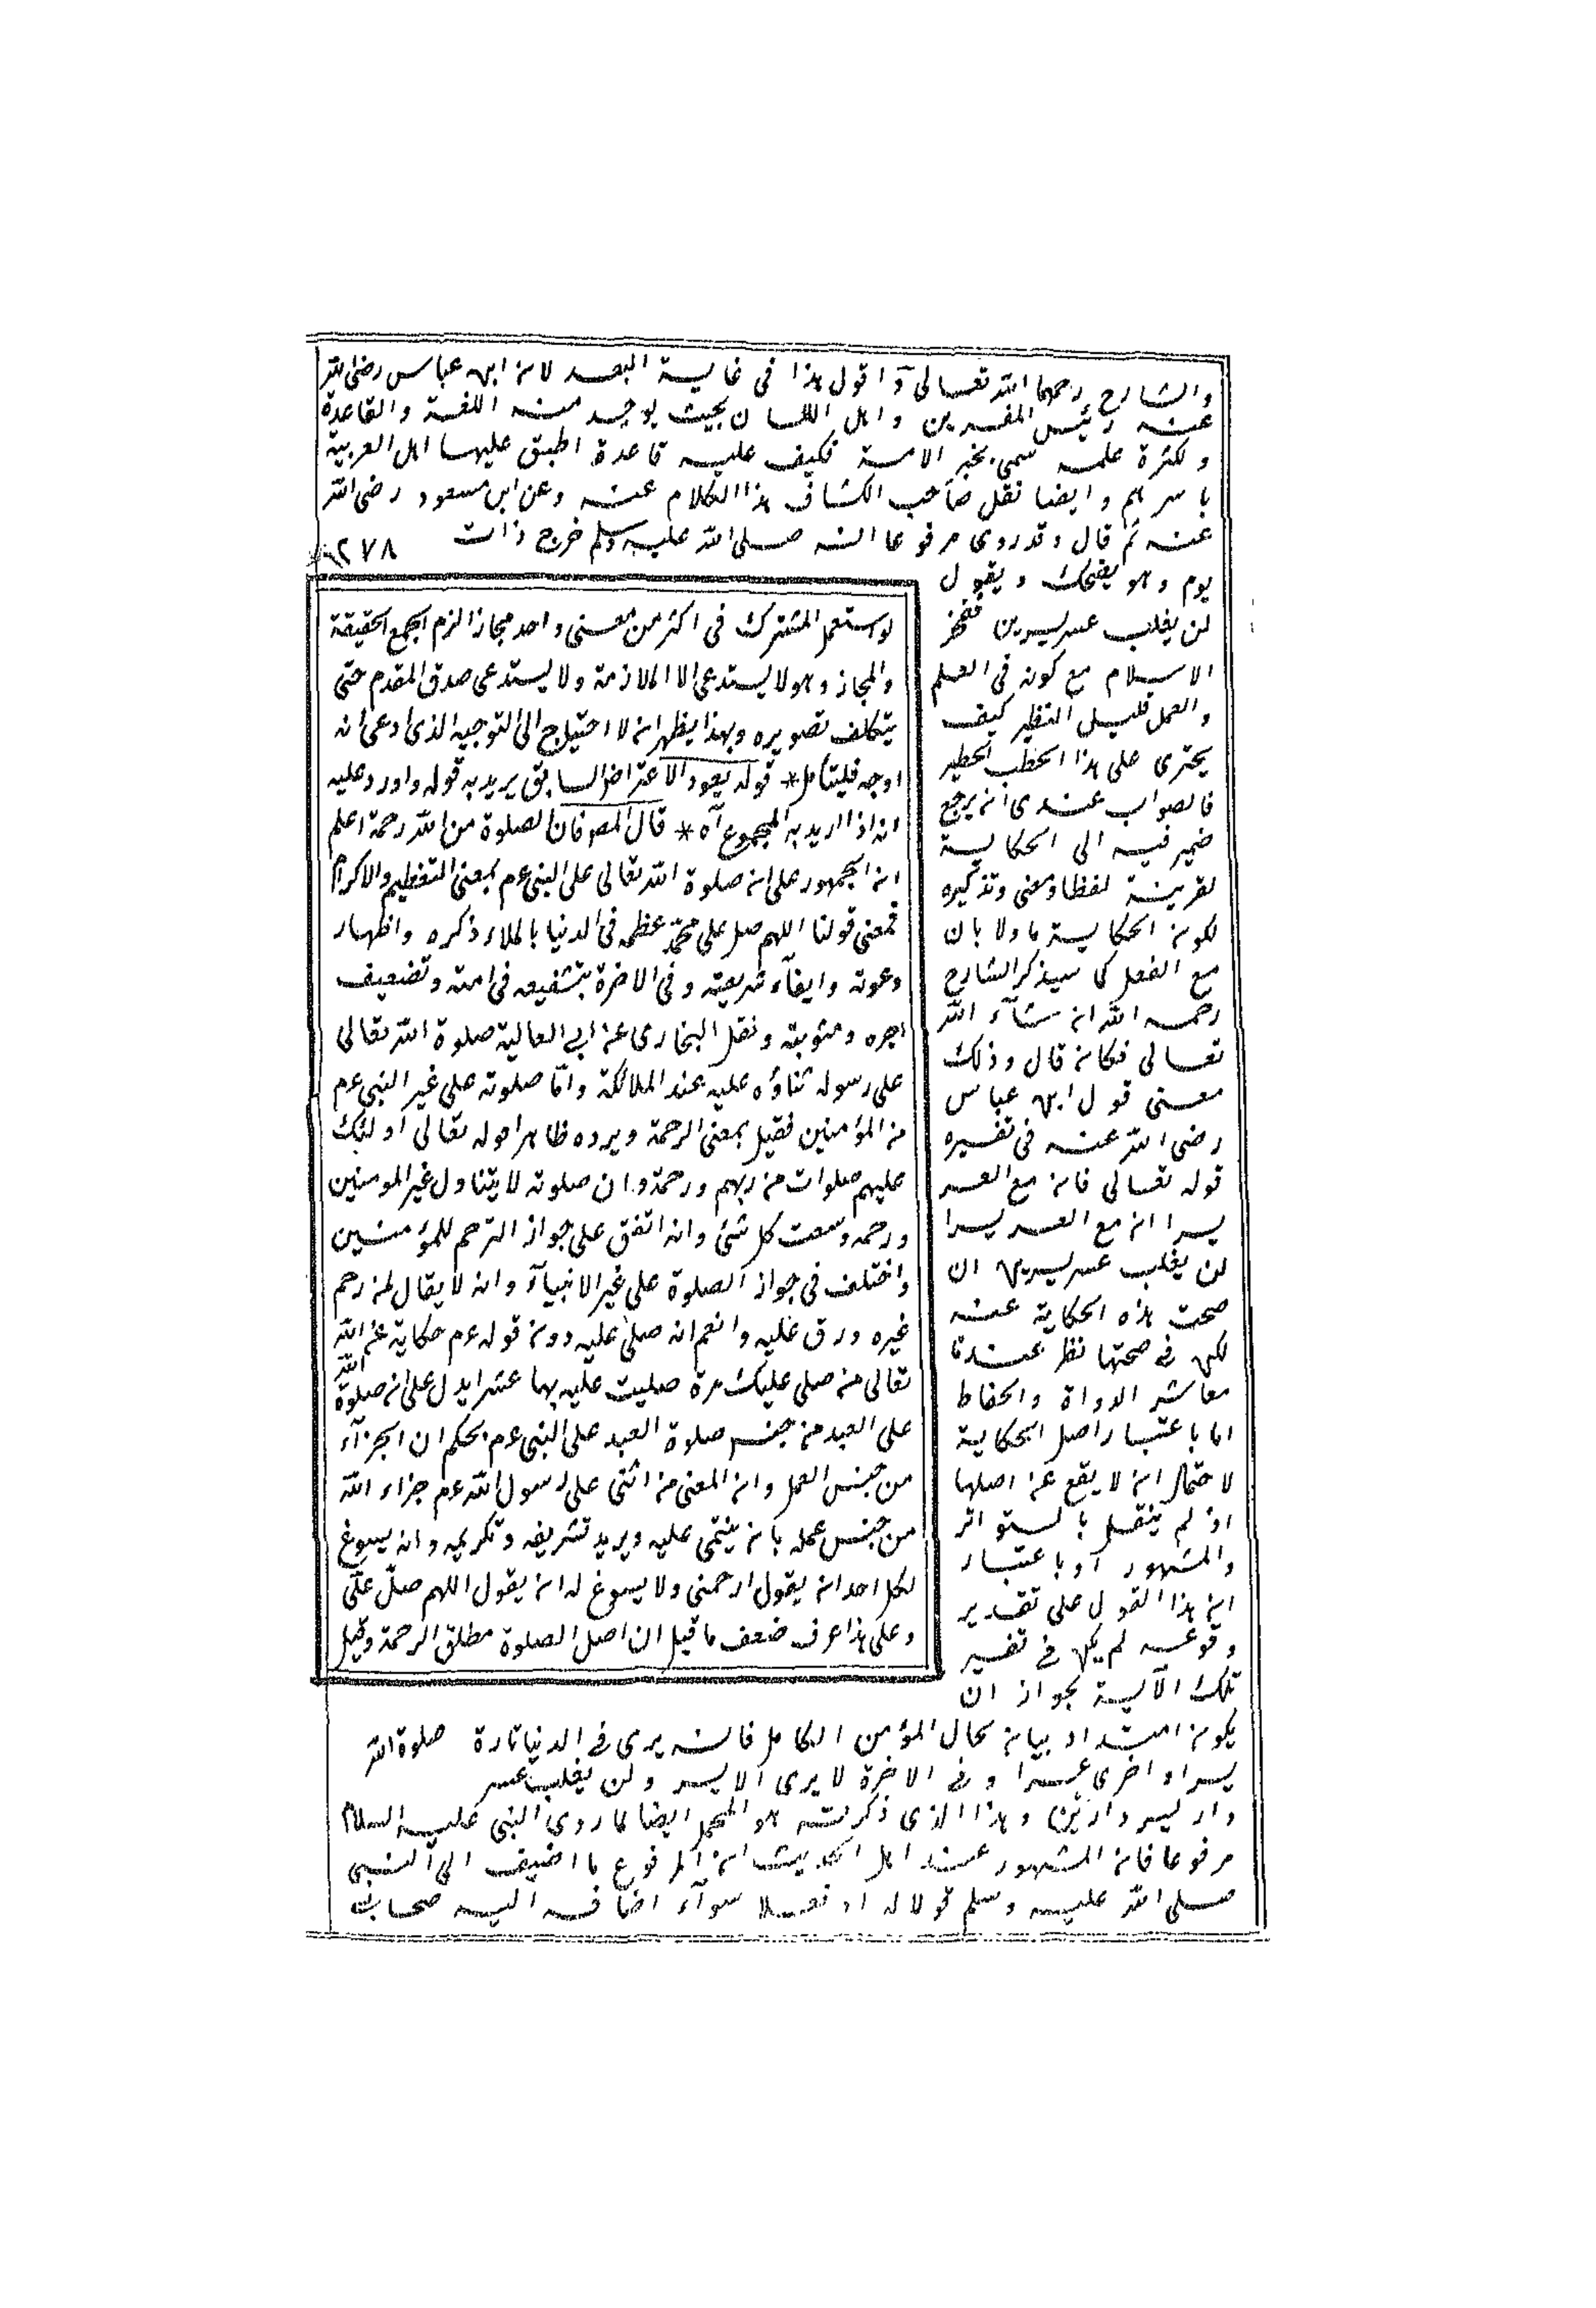 والشارح رحمهما الله تعالى آ اقول هذا فى غاية البعد لان ابن عباس رضى الله
عنه رئيس المفسرين واهل اللسان بحيث يوجد منه اللغة والقاعدة
ولكثرة علمه سمى بخبر الامة فكيف عليه قاعدة اطبق عليها اهل العربية
باسرهم وايضا نقل صاحب الكشاف هذا الكلام عنه وعن ابن مسعود رضى الله
عنه ثم قال وقد روى مرفوعا انه صلى الله عليه وسلم خرج ذات
٢٧٨
يوم وهو يضحك ويقول
لن يغلب عسر يسرين ففخر
الاسلام مع كونه فى العلم
والعمل قليل النظير كيف
يجترى على هذا الخطب الخطير
فالصواب عندى انه يرجع
ضمير فيه الى الحكاية
لقرينة لفظا ومعنى وتذكيره
لكون الحكاية ماولا بان
مع الفعل كما سيذكر الشارح
رحمه الله ان شآء الله
تعالى فكانه قال وذلك
معنى قول ابن عباس
رضى الله عنه فى تفسيره
قوله تعالى فان مع العسر
يسرا ان مع العسر يسرا
لن يغلب عسر يسرين ان
صحت هذه الحكاية عنه
لكن فى صحتها نظر عندنا
معاشر الرواة والحفاظ
اما باعتبار اصل الحكاية
لاحتمال ان لا يقع عن اصلها
اذ لم ينقل بالتواتر
والمشهور او باعتبار
ان هذا القول على تقدير
وقوعه لم يكن فى تفسير
تلك الآية بجواز ان
يكون ابتداء بيان لحال المؤمن الكامل فانه يرى فى الدنيا تارة
يسرا واخرى عسرا وفى الاخرة لا يرى الا ليسر ولن يغلب عسر
دار يسر دارين وهذا الذى ذكرته هو المحمل ايضا لما روى النبى عليه السلام
مرفوعا فان المشهور عند اهل الحديث ان المرفوع ما اضيف الى النبى
صلى الله عليه وسلم قولا له او فعلا سوآء اضافه اليه صحابى
لو استعمل المشترك فى اكثر من معنى واحد مجازا لزم الجمع الحقيقة
والمجاز وهو لا يستدعى الا الملازمة ولا يستدعى صدق المقدم حتى
يتكلف تصويره وبهذا يظهر ان لا احتياج الى التوجيه الذى ادعى انه
اوجه فليتأمل * قوله يعود الاعتراض السابق يريد به قوله واورد عليه
انه اذا اريد به المجموع آه * قال المص فان الصلوة من الله رحمة اعلم
ان الجمهور على ان صلوة الله تعالى على النبى عم بمعنى التعظيم والاكرام
فمعنى قولنا اللهم صل على محمد عظمه فى الدنيا باعلاء ذكره واظهار
دعوته وابقآء شريعته وفى الاخرة بتشفيعه فى امته وتضعيف
اجره ومثوبته ونقل البخارى عن ابى العالية صلوة الله تعالى
على رسوله ثناؤه عليه عند الملائكة وامّا صلوته على غير النبى عم
من المؤمنين فقيل بمعنى الرحمة ويرده ظاهر قوله تعالى اولئك
عليهم صلوات من ربهم ورحمة وان صلوته لا يتناول غير المومنين
ورحمه وسعت كل شئ وانه اتفق على جواز الترحم للمؤمنين
واختلف فى جواز الصلوة على غير الانبيآء وانه لا يقال لمن رحم
غيره ورق عليه وانعم انه صلى عليه دون قوله عم حكاية عن الله
تعالى من صلى عليك مرة صليت عليه بها عشرا يدل على ان صلوة الله
على العبد من جنس صلوة العبد على النبى عم بحكم ان الجزآء
من جنس العمل وان المعنى من اثنى على رسول الله عم جزاء الله
من جنس عمله بان يثنى عليه ويريد تشريفه وتكريمه وانه يسوغ
لكل احد ان يقول ارحمنى ولا يسوغ له ان يقول اللهم صلّ علىّ
وعلى هذا عرف ضعف ما قيل ان اصل الصلوة مطلق الرحمة وقيل
صلوة الله